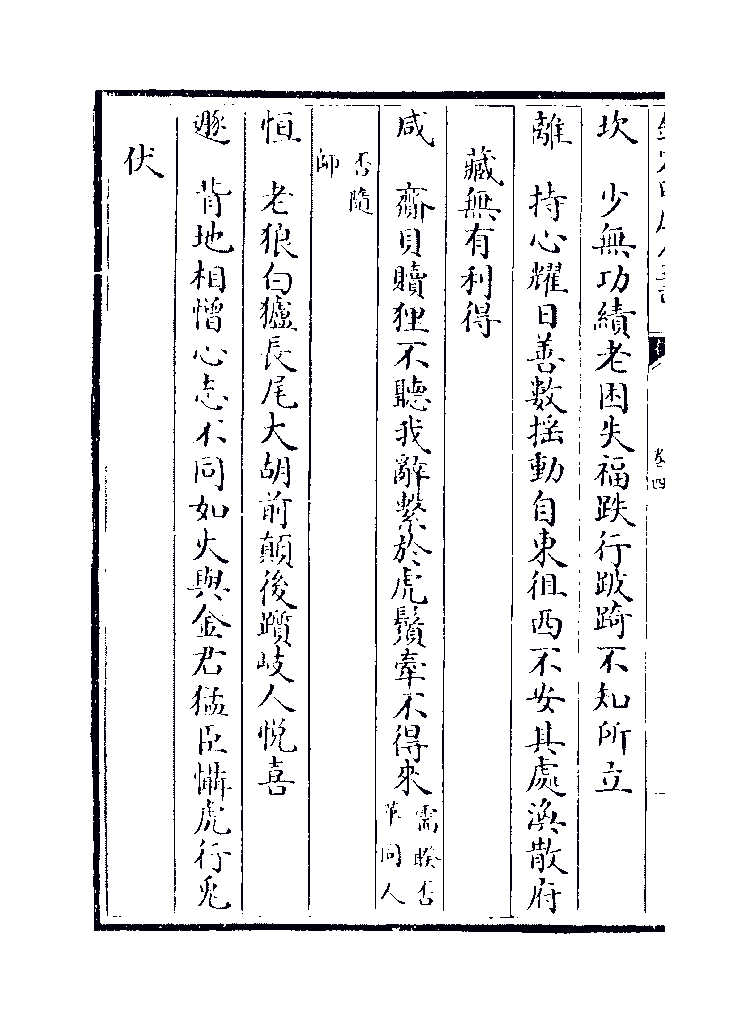 卷四
坎　少無功績老困失福跌行跛踦不知所立
離　持心耀日善數搖動自東徂西不安其處渙散府
藏無有利得
咸　齎貝贖狸不聽我辭繫於虎鬚牽不得來需睽否革同人
否隨師
恒　老狼白獹長尾大胡前顛後躓岐人悅喜
遯　背地相憎心志不同如火與金君猛臣懾虎行兔
伏